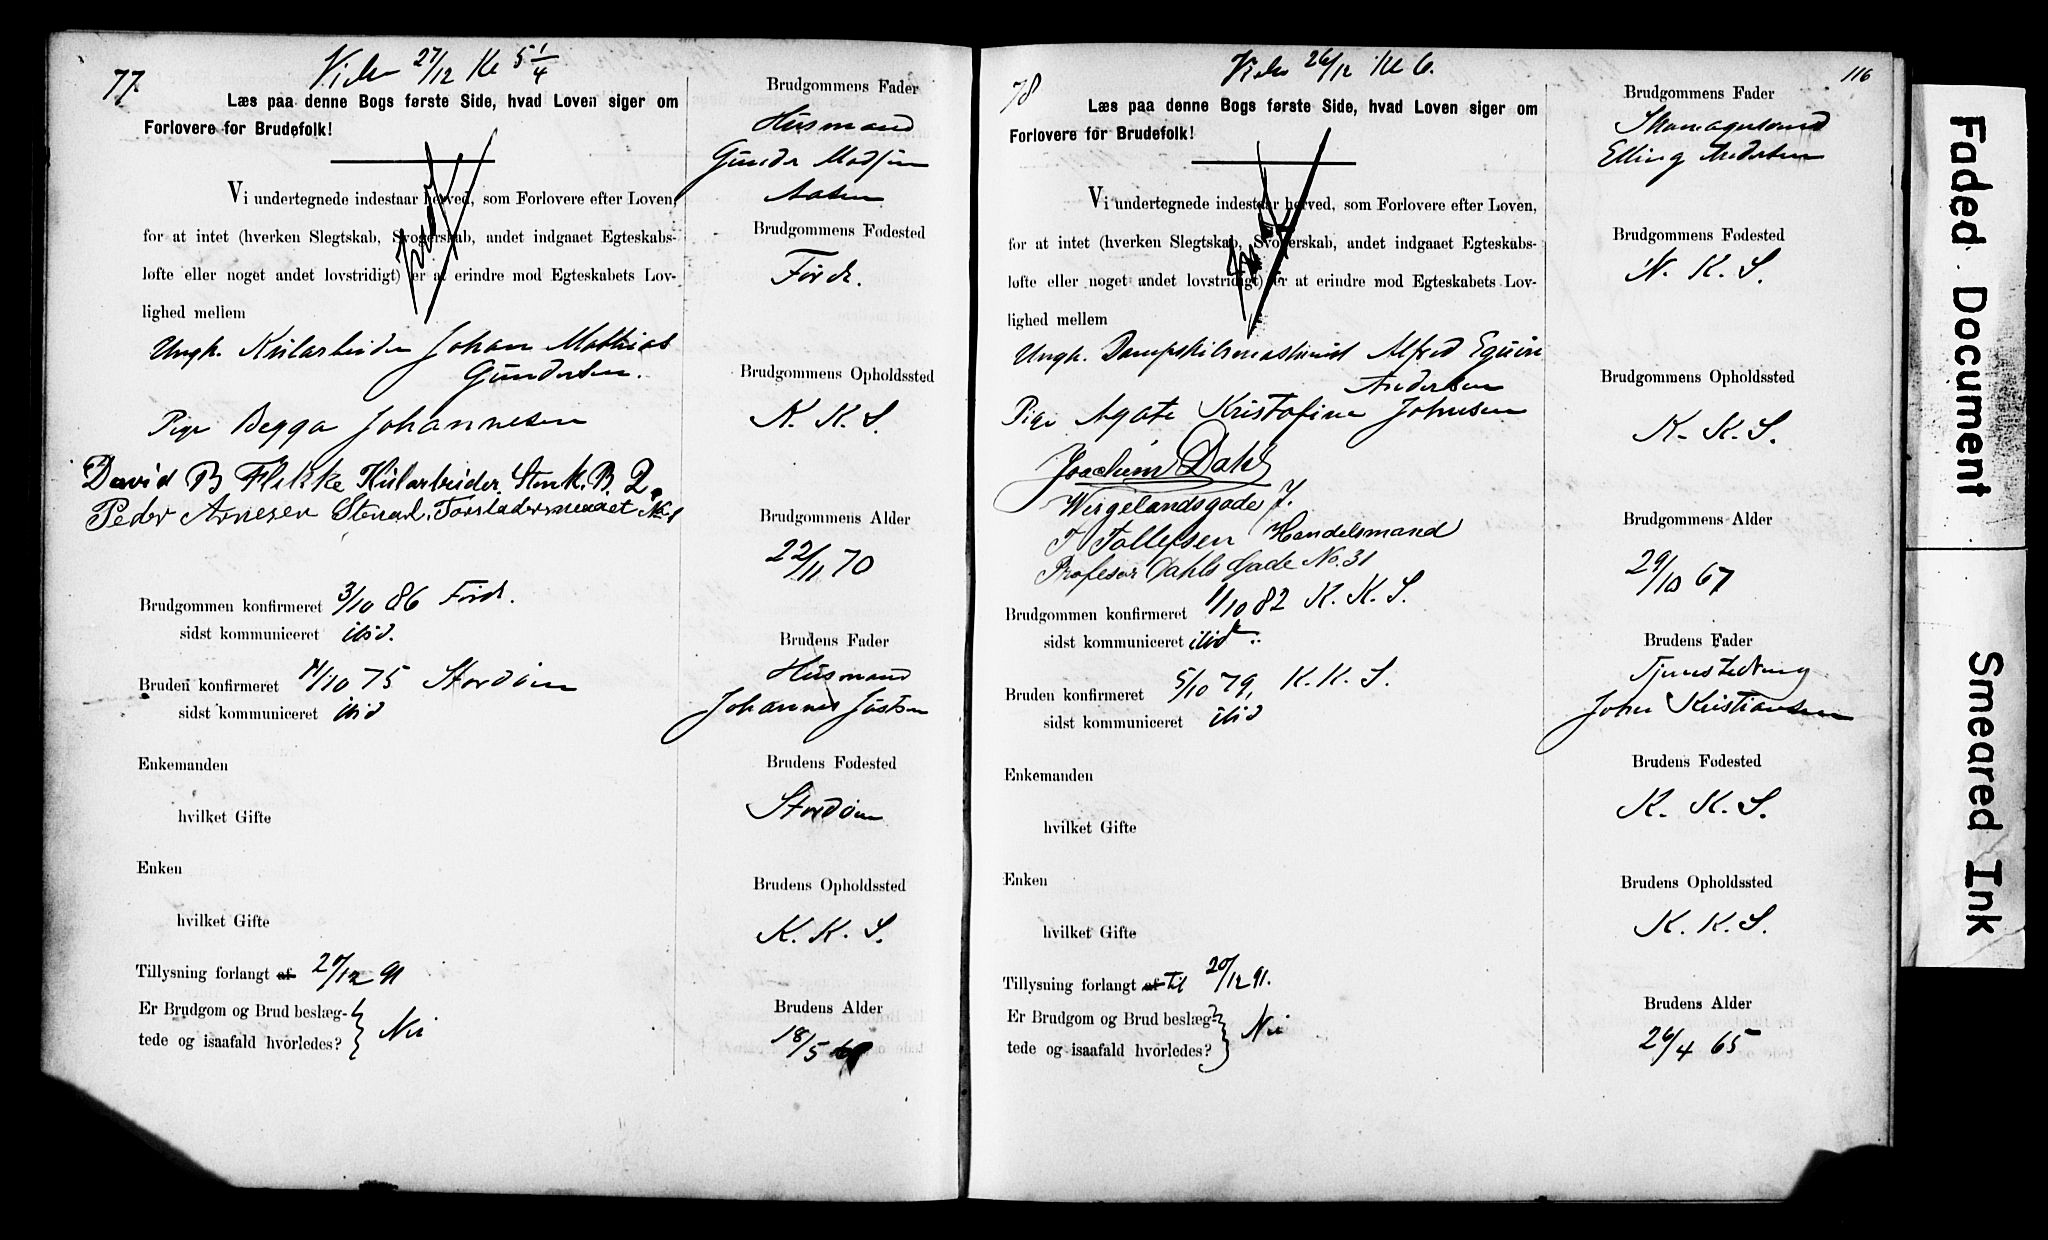 77.
Vies 27/12 Kl 5 1/4
Læs paa denne Bogs første Side, hvad Loven siger om
Forlovere for Brudefolk!
Vi undertegnede indestaar herved, som Forlovere efter Loven,
for at intet (hverken Slegtskab, Svogerskab, andet indgaaet Egteskabs-
løfte eller noget andet lovstridigt) er at erindre mod Egteskabets Lov-
lighed mellem
Ungk. Johan Mathias
Gundersen.
Pige Begga Johannesen
David B Flekke Stenk. B. 2.
Peder Arnesen
Brudgommen konfirmeret 3/10 86 Førde.
sidst kommuniceret ibid.
Bruden konfirmeret 11/10 75 Stordøen
sidst kommuniceret ibid
Enkemanden
hvilket Gifte
Enken
hvilket Gifte
Tillysning forlangt af 20/12 91
Er Brudgom og Brud beslæg-
tede og isaafald hvorledes? } Nei
Brudgommens Fader
Husmand
Gunder Madsen
Brudgommens Fødested
Førde.
Brudgommens Opholdssted
K. K. S.
Brudgommens Alder
22/11 70
Brudens Fader
Husmand
Johannes Jostsen
Brudens Fødested
Stordøen
Brudens Opholdssted
K. K. S.
Brudens Alder
18/5
78
Vies 26/12 Kl 6.
116
Læs paa denne Bogs første Side, hvad Loven siger om
Forlovere for Brudefolk!
Vi undertegnede indestaar herved, som Forlovere efter Loven,
for at intet (hverken Slegtskab, Svogerskab, andet indgaaet Egteskabs-
løfte eller noget andet lovstridigt) er at erindre mod Egteskabets Lov-
lighed mellem
Ungk. Dampskibsmaskinist Alfred
Andersen
Pige Agate Kristofine Johnsen
Joachim Dahl
Wergelandsgade 7.
T Tollefsen Handelsmand
Profesor Dahls Gade No. 31
Brudgommen konfirmeret 1/10 82 K. K. S.
sidst kommuniceret ibid
Bruden konfirmeret 5/10 79, K. K. S.
sidst kommuniceret ibid
Enkemanden
hvilket Gifte
Enken
hvilket Gifte
Tillysning forlangt af til 20/12 91.
Er Brudgom og Brud beslæg-
tede og isaafald hvorledes? } Nei
Brudgommens Fader
Skomagersvend
Elling Andersen
Brudgommens Fødested
N. K. S.
Brudgommens Opholdssted
K. K. S.
Brudgommens Alder
29/10 67
Brudens Fader
John Kristiansen
Brudens Fødested
K. K. S.
Brudens Opholdssted
K. K. S.
Brudens Alder
26/4 65
Faded Document
Smeared Ink